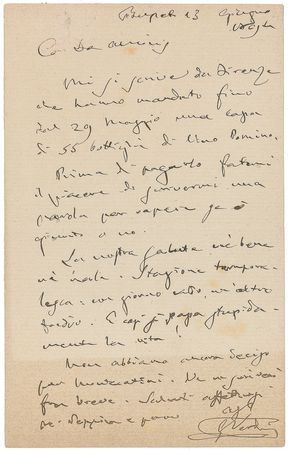 13 Giugno
Mi si scrive da Firenze
che hanno mandato fino
dal 29 Maggio una cassa
di 55 bottiglie di Vino Pomino.
Prima di pagarlo fatemi
il piacere di scrivermi una
parola per sapere se è
giunto o no.
La nostra salute nè bene
nè male. Stagione
: un giorno caldo, un altro
freddo. E così si passa stupida-
mente la vita!
Non abbiamo ancora deciso
per Montecatini. Ve ne scriverò
fra breve. Saluti
di Peppina e
G Verdi